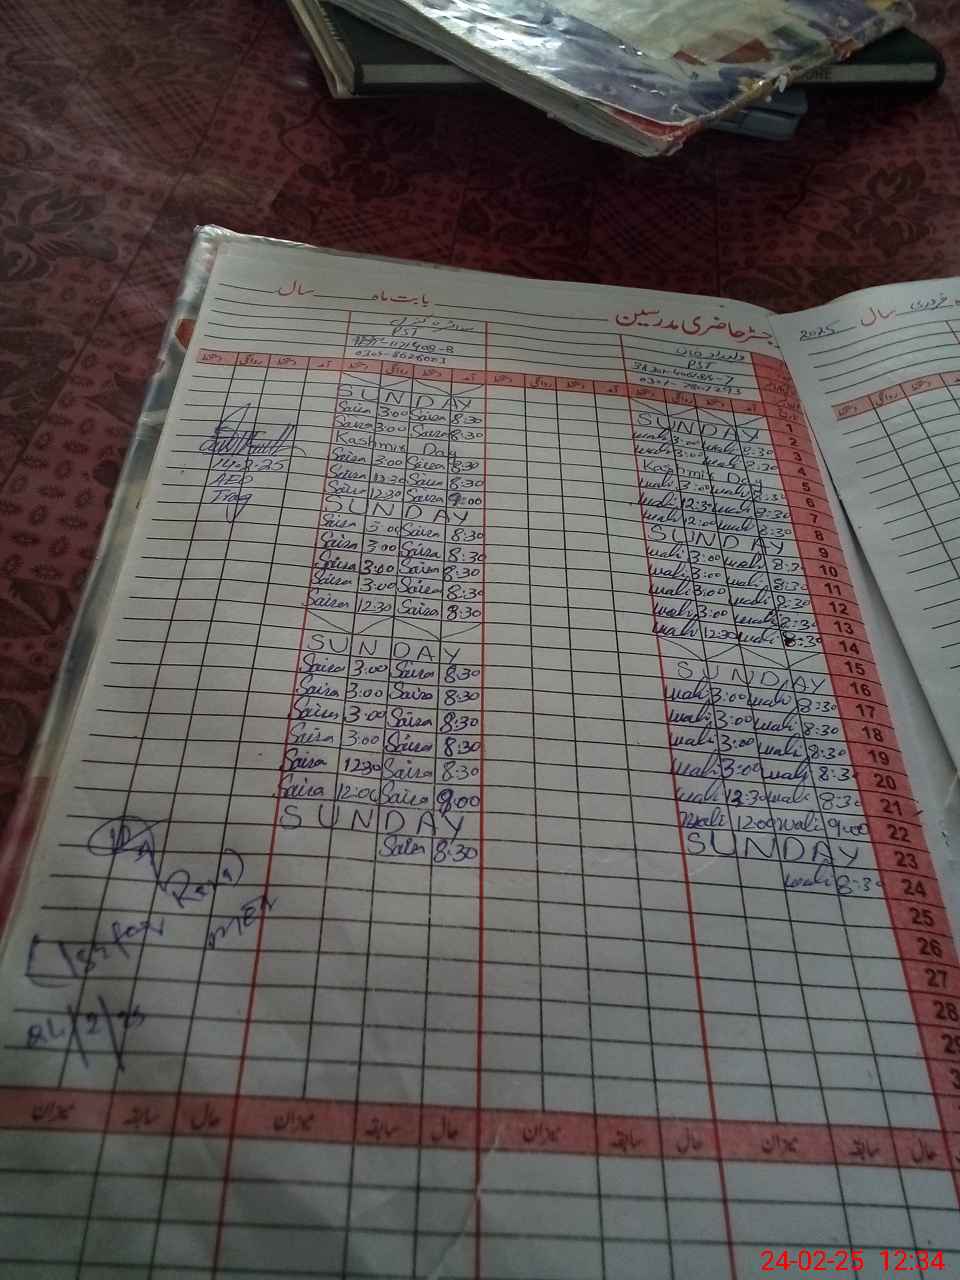 بابت ماہ سال
جسٹر حاضری مدرسین
2025 سال فروری
PST
PST
0301-8628003
دستخط روانگی دستخط آمد دستخط روانگی دستخط آمد دستخط روانگی دستخط آمد دستخط روانگی دستخط آمد
SUNDAY SUNDAY 1
Saira 3:00 Saira 8:30 wali 3:00 wali 8:30 2
Saira 3:00 Saira 8:30 wali 3:00 wali 8:30 3
Kashmir Day Kashmir Day 4
Saira 3:00 Saira 8:30 wali 3:00 wali 8:30 5
Saira 12:30 Saira 8:30 wali 12:30 wali 8:30 6
Saira 12:30 Saira 9:00 wali 12:00 wali 8:30 7
SUNDAY SUNDAY 8
Saira 3:00 Saira 8:30 wali 3:00 wali 8:30 9
Saira 3:00 Saira 8:30 wali 3:00 wali 8:30 10
Saira 3:00 Saira 8:30 wali 3:00 wali 8:30 11
Saira 3:00 Saira 8:30 wali 3:00 wali 8:30 12
Saira 12:30 Saira 8:30 wali 12:30 wali 8:30 13
14
SUNDAY SUNDAY 15
Saira 3:00 Saira 8:30 wali 3:00 wali 8:30 16
Saira 3:00 Saira 8:30 wali 3:00 wali 8:30 17
Saira 3:00 Saira 8:30 wali 3:00 wali 8:30 18
Saira 3:00 Saira 8:30 wali 3:00 wali 8:30 19
Saira 12:30 Saira 8:30 wali 12:30 wali 8:30 20
Saira 12:00 Saira 9:00 wali 12:00 wali 9:00 21
SUNDAY SUNDAY 22
Saira 8:30 wali 8:30 23
24
25
26
27
28
29
AEO
24/2/25
میزان سابقہ حال میزان سابقہ حال میزان سابقہ حال میزان سابقہ حال
24-02-25 12:34